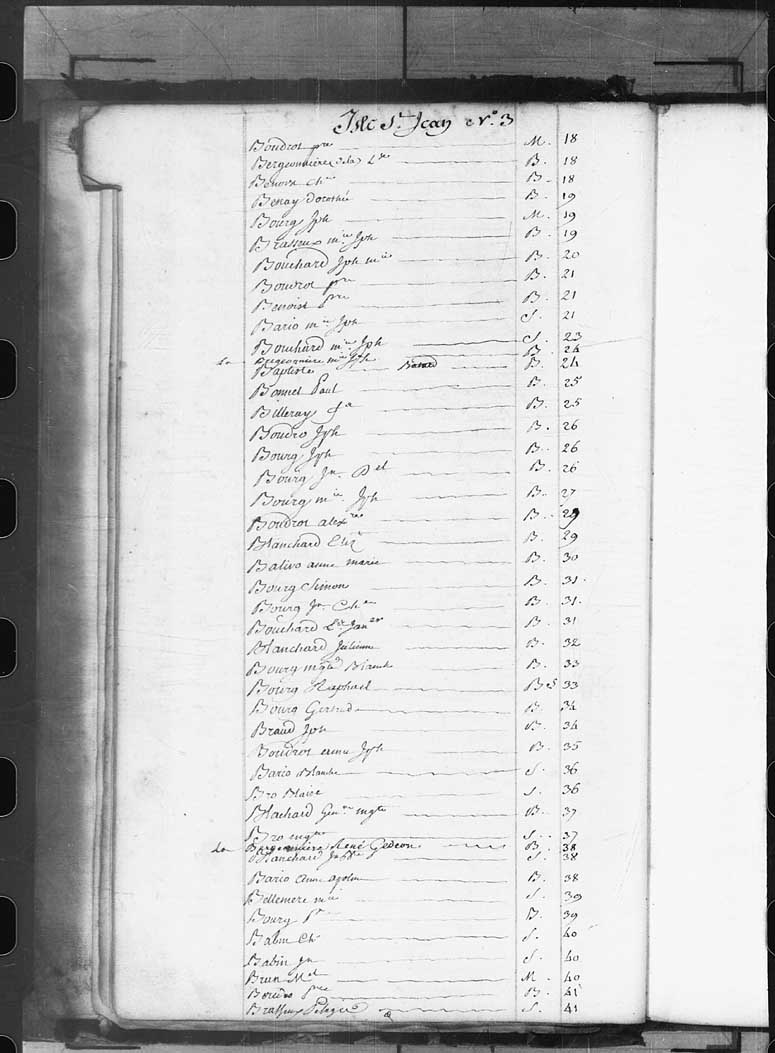 Isle St. Jean No. 3
Boudrot pre M. 18
Bergeonniere (de la) Ls B. 18
Benoist Ch B. 18
Benay dorothé B. 19
Bourg Jph M. 19
Brasseux mie Jph B. 19
Bouchard Jph mie B. 20
Boudrot pre B. 21
Benoist pre B. 21
Bario mie Jph S. 21
Bouchard mie Jph S. 23
La Bergeonniere mie Jph B. 24
Baptiste Batard B. 24
Bonnet Paul B. 25
Billeray B. 25
Boudro Jph B. 26
Bourg Jph B. 26
Bourg Jn. Bel B. 26
Bourg mie Jph B. 27
Boudrot alexre B. 29
Blanchard Eliz B. 29
Balivo anne marie B. 30
Bourg Simon B. 31.
Bourg Jn. Ch B. 31.
Bouchard Ls Janer B. 31
Blanchard Julienne B. 32
Bourg mgte Blanche B. 33
Bourg Raphael B S 33
Bourg Gertrude B. 34
Braud Jph B. 34
Boudrot anne Jph B. 35
Bario Blanche S. 36
Bro Blaise S. 36
Blachard Genve mgte B. 37
Bro mgte S. 37
La Bergeonniere René Gedeon B. 38
Blanchard Jn Bte S. 38
Bario Anne apolin B. 38
Bellemere mie S. 39
Bourg Pre B. 39
Babin Ch S. 40
Babin Jn S. 40
Brun Mel M. 40
Boudro pre B. 41
Brasseux Pelagie S. 41